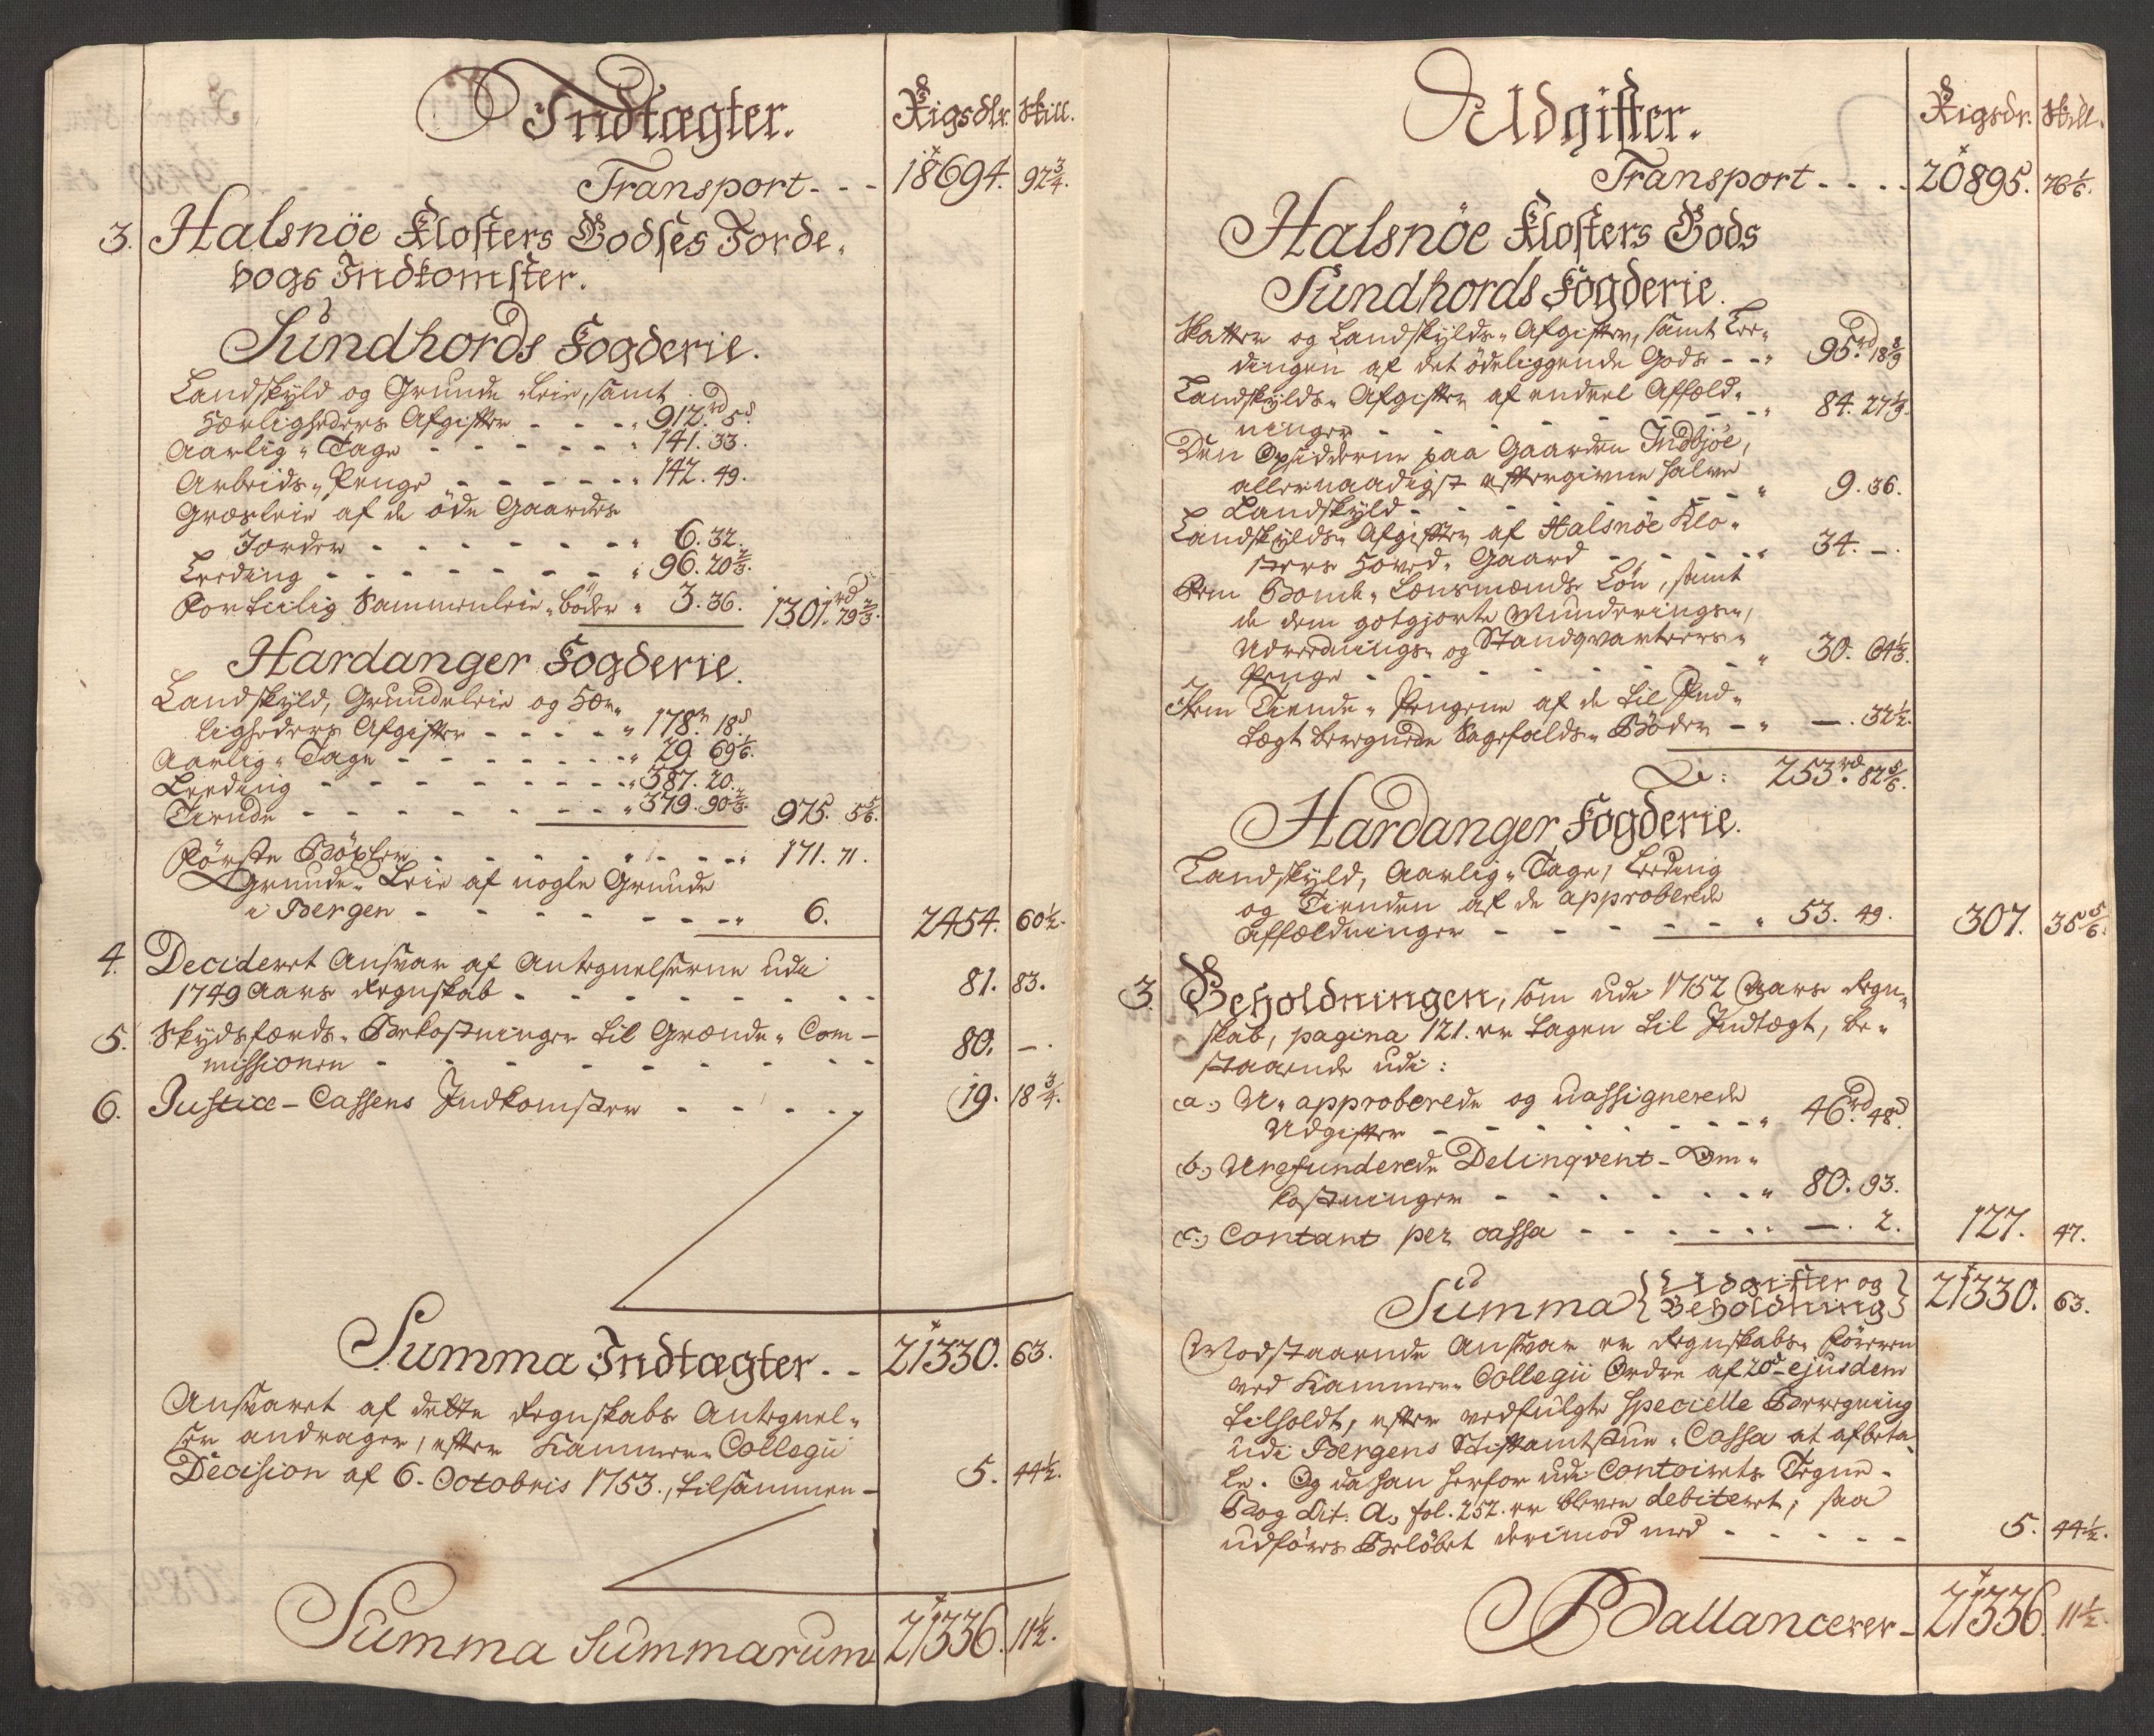 Indtægter. Rigsdlr. Skill.
Transport - - - 18694. 92 3/4.
3. Halsnöe Klosters Godses Jorde-
bogs Indkomster.
Sundhords Fogderie.
Landskyld og Grunde-Leie, samt
Herligheders Afgifter - - - 912rd 5s
Aarlig-Tage - - - - - 141. 33.
Arbeids-Penge - - - - - 142. 49.
Græsleie af de öde Gaardes
Jorder - - - - - - 6. 32.
Leeding - - - - - - - 96. 20 2/3.
For tiilig Sammenleie-böder 3. 36. 1301rd 79 2/3.
Hardanger Fogderie.
Landskyld, Grundeleie og Her-
ligheders Afgifter - - - - 178rd 18s
Aarlig-Tage - - - - - - 29. 69 1/6.
Leeding - - - - - - - 387. 20.
Tiende - - - - - - - 379. 90 2/3. 975. 5 5/6.
Förste Böxler - - - - - - - 171. 71.
Grunde-Leie af nogle Grunde
i Bergen - - - - - - - 6. 2454. 60 1/2.
4. Decideret Ansvar af Antegnelserne udi
1749 Aars Regnskab - - - - - - - - 81. 83.
5. Skydsfærds-Bekostninger til Grændse-Com-
missionen - - - - - - - - 80. -.
6. Justice-Cassens Indkomster - - - - - 19. 18 3/4.
Summa Indtægter - - 21330. 63.
Ansvaret af dette Regnskabs Antegnel-
ser andrager, efter Kammer-Collegii
Decision af 6. Octobris 1753., tilsammen - 5. 44 1/2.
Summa Summarum 21336. 11 1/2.
Udgifter. Rigsdr. Skill.
Transport - - - - 20895. 76 1/6.
Halsnöe Klosters Gods
Sundhords Fogderie.
Skatter og Landskylds-Afgifter, samt Lee-
dingen af det ödeliggende Gods - - 95rd 18 8/9
Landskylds-Afgifter af endeel Affæld-
ninger - - - - - - - 84. 27 1/9.
Den Opsidderne paa Gaarden Indbjöe,
allernaadigst eftergivne halve
Landskyld - - - - - - - 9. 36.
Landskylds-Afgifter af Halsnöe Klo-
sters Hoved-Gaard - - - - - 34. -.
Fem Bonde-Lensmænds Lön, samt
de dem gotgjorte Munderings-,
Udrednings- og Standqvarteers-
Penge - - - - - - - 30. 64 1/3.
Item Tiende-Pengene af de til Ind-
tægt beregnede Sagefalds-Böder - - -. 32 1/2.
253rd 82 5/6.
Hardanger Fogderie.
Landskyld, Aarlig-Tage, Leeding
og Tienden af de approberede
Affældninger - - - - - - 53. 49. 307. 35 5/6.
3. Beholdningen, som udi 1752 Aars Regn-
skab, pagina 121. er tagen til Indtægt, be-
staaende udi:
a.) U-approberede og uassignerede
Udgifter - - - - - - - - 46rd 48s
b.) Urefunderede Delinqvent-Om-
kostninger - - - - - - - 80. 93.
c.) Contant per cassa - - - - - - -. 2. 127. 47.
Summa {Udgifter og
Beholdning} 21330. 63.
Modstaaende Ansvar er Regnskabs-Föreren
ved Kammer-Collegii Ordre af 20de ejusdem
tilholdt, efter vedfulgte specielle Beregning
udi Bergens Stiftamtstue-Cassa at afbeta-
le. Og da han herfor udi Contoirets Tegne-
Bog Lit. A, fol. 252. er bleven debiteret; saa
udföres Belöbet derimod med - - - - - 5. 44 1/2.
Ballancerer - 21336. 11 1/2.